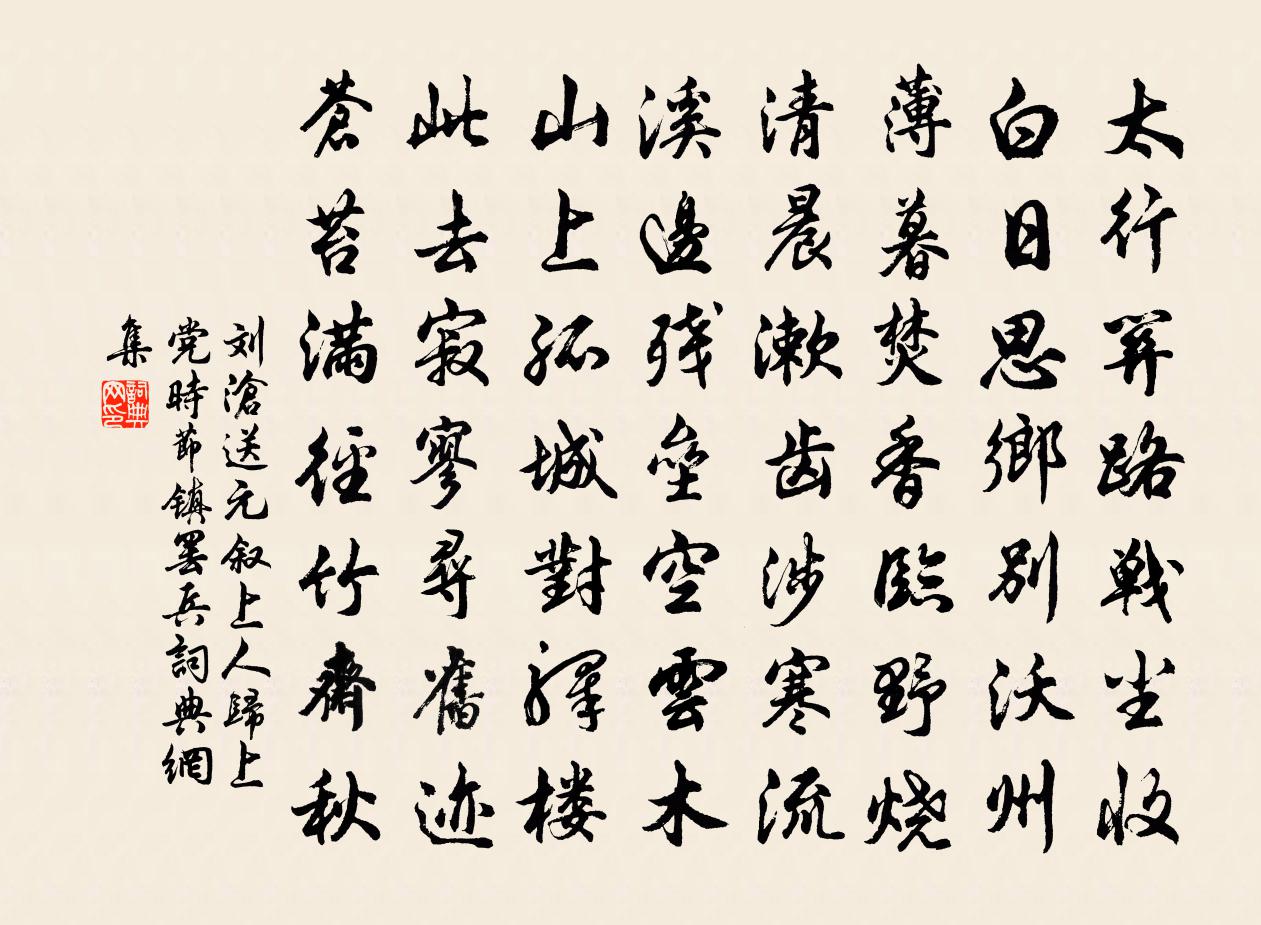 太行关路战尘收
白日思鄉别沃州
薄暮焚香臨野烧
清晨漱齿涉寒流
溪邊残壘空雲木
山上孤城對驛楼
此去寂寥尋舊迹
蒼苔满徑竹齋秋
刘滄送元叙上人歸上
党時節鎮罢兵詞典網
集
詞典
网印